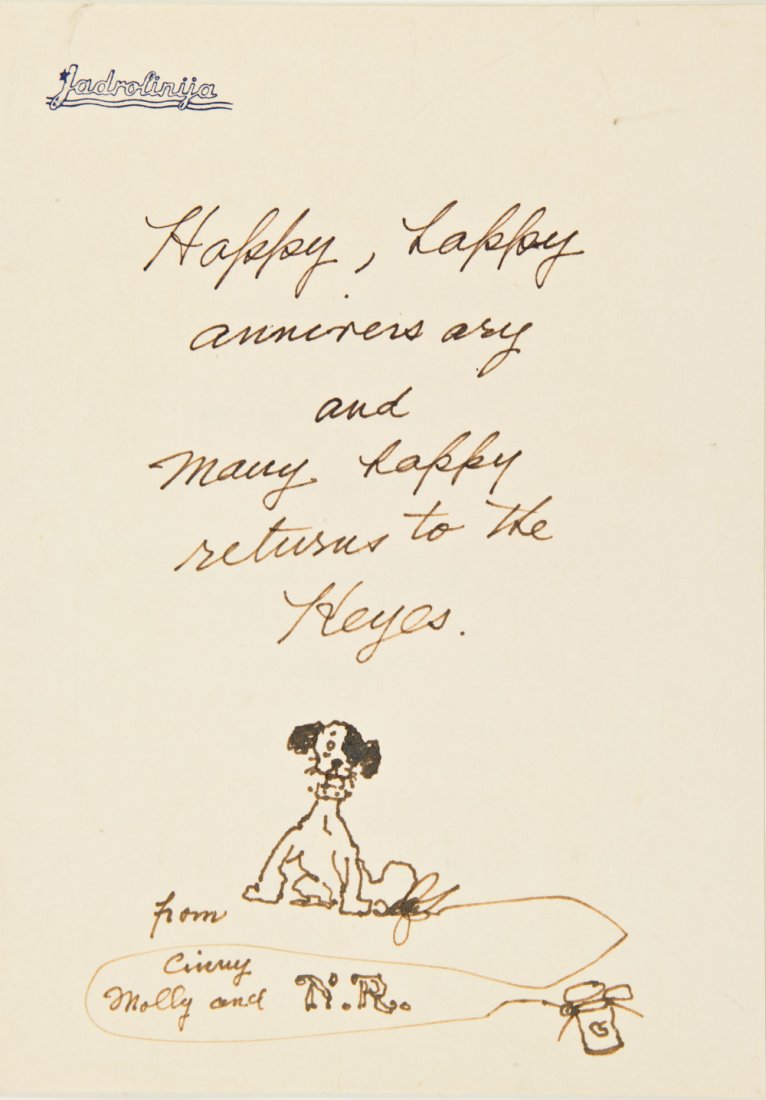 Jadrolinija
Happy, happy
annivers ary
and
Many happy
returns to the
Keyes.
from
Cinny
Molly and N.R.